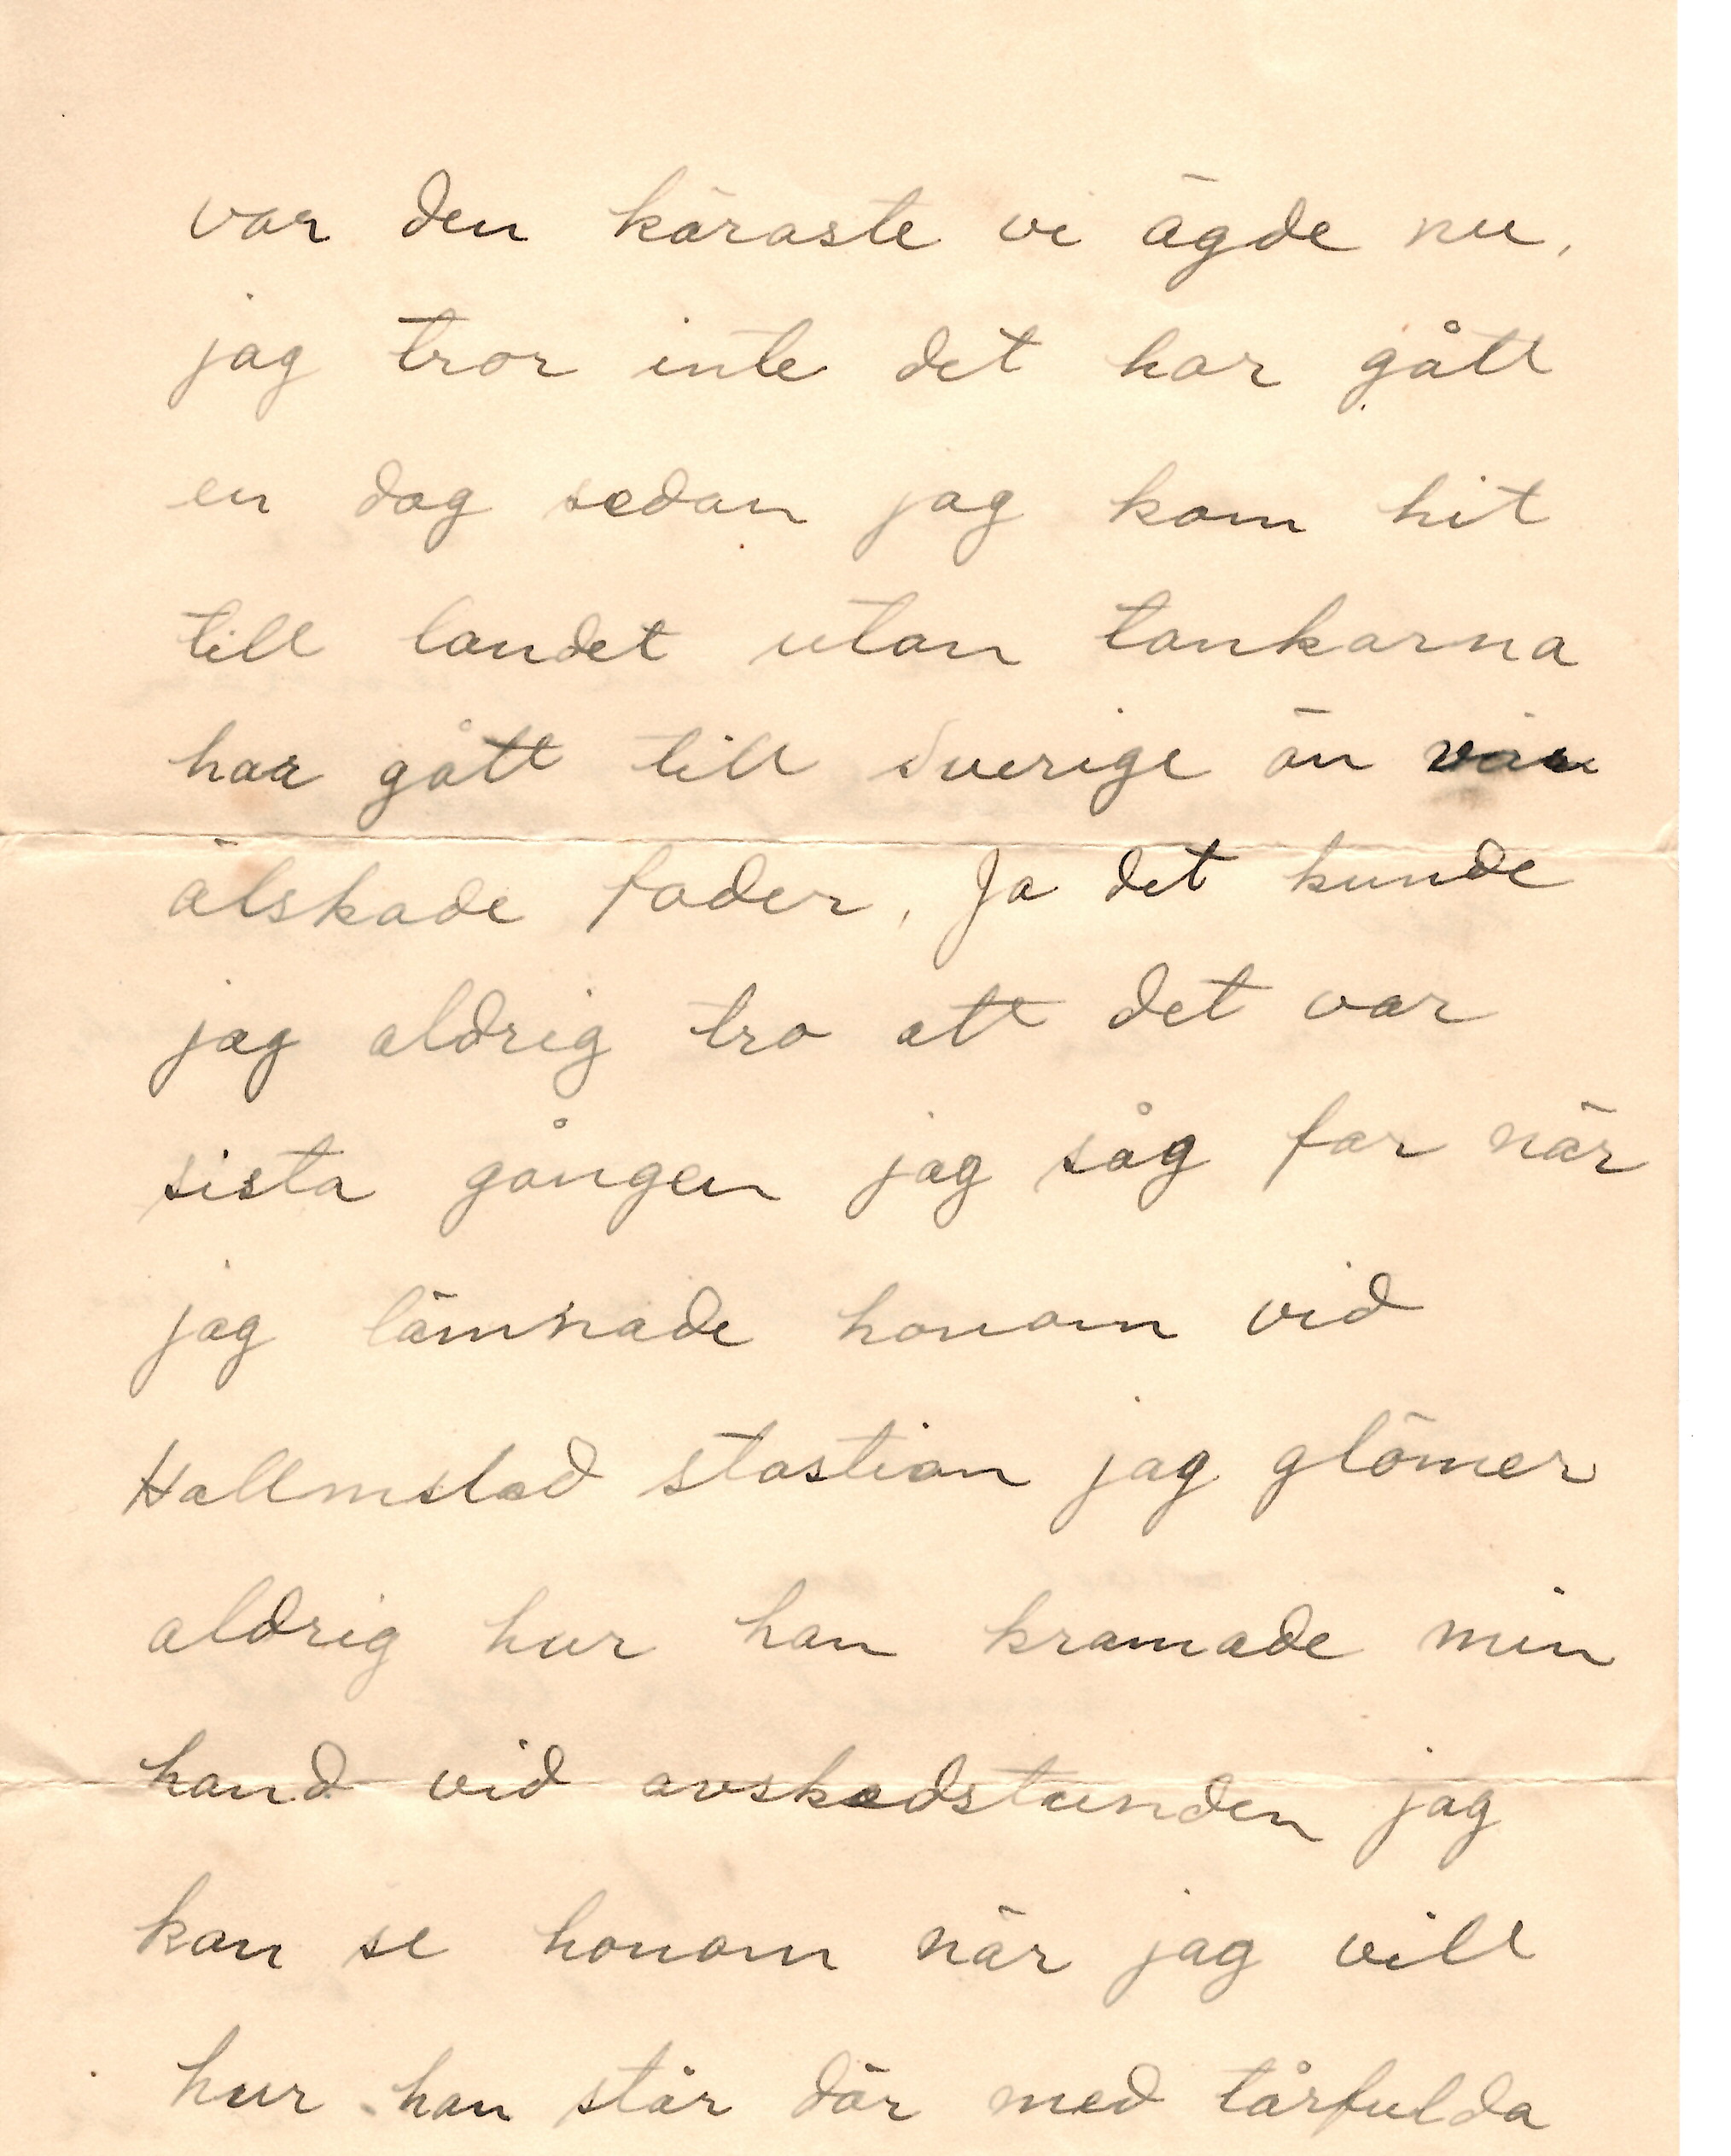 var den käraste vi ägde nu,
jag tror inte det har gått
en dag sedan jag kom hit
till landet utan tankarna
har gått till Sverige än
älskade fader, Ja det kunde
jag aldrig tro att det var
sista gången jag såg far när
jag lämnade honom vid
Hallmstad stastion jag glömer
aldrig hur han kramade min
hand vid avskedstunden jag
kan se honom när jag vill
hur han står där med tårfulda